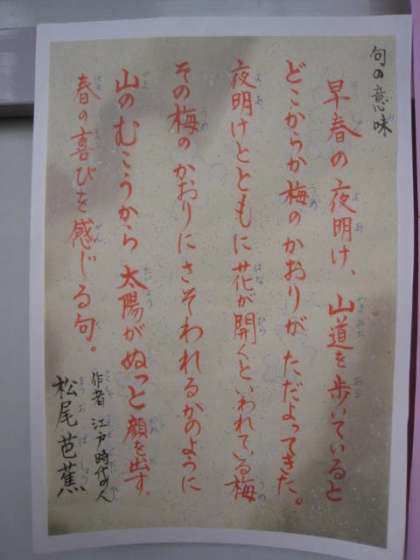 句の意味
早春の夜明け、山道を歩いていると
どこからか梅のかおりがただよってきた。
夜明けとともに花が開くといわれている梅
その梅のかおりにさそわれるかのように
山のむこうから太陽がぬっと顔を出す。
春の喜びを感じる句。
作者 江戸時代の人
松尾芭蕉